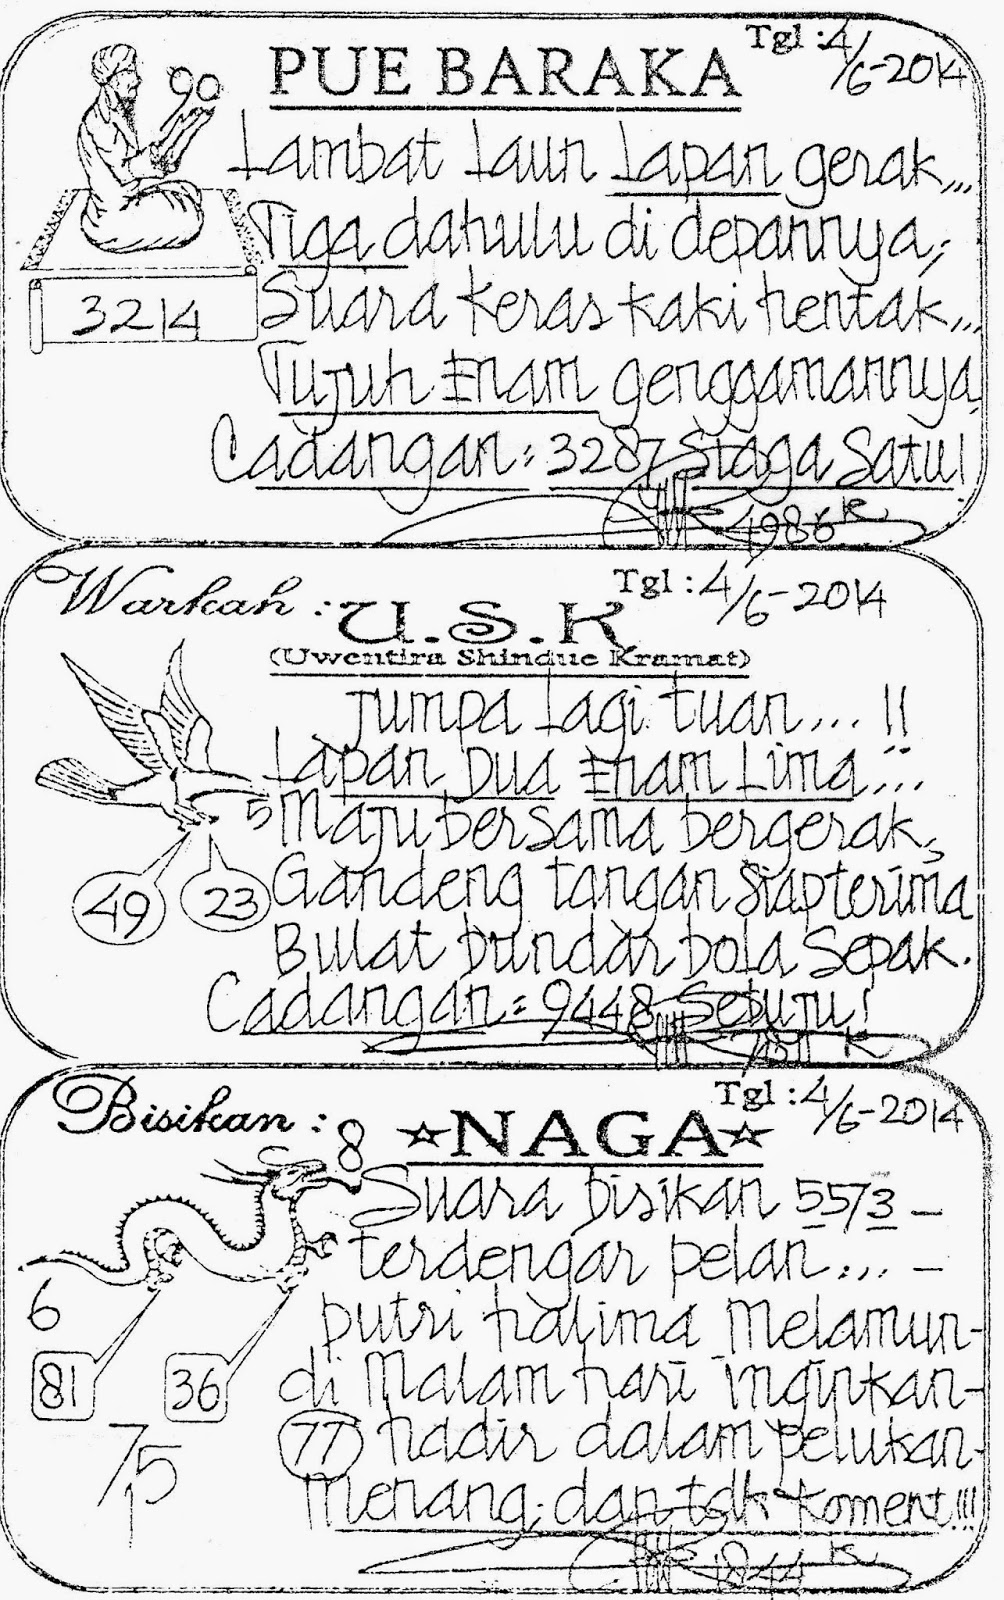 PUE BARAKA
Tgl : 4/6-2014
90
Lambat Laun Lapan gerak...
Tiga dahulu di depannya,
3214
Suara keras kaki hentak...
Tujuh Enam genggamannya,
Cadangan : 3287 Siaga Satu!
1986 K
Warkah : U.S.K
Tgl : 4/6-2014
(Uwentira Shindue Kramat)
Jumpa Lagi tuan... !!
Lapan Dua Enam Lima...
5
Maju bersama bergerak,
49
23
Gandeng tangan Siap terima
Bulat bundar bola Sepak.
Cadangan : 9448 Setuju!
K
Bisikan : ☆NAGA☆
Tgl : 4/6-2014
8
Suara bisikan 5573 –
terdengar pelan... –
6
putri halima Melamun-
81
36
di Malam hari inginkan-
77 hadir dalam pelukan-
75
Menang, dan tdk koment!!!
1844 K